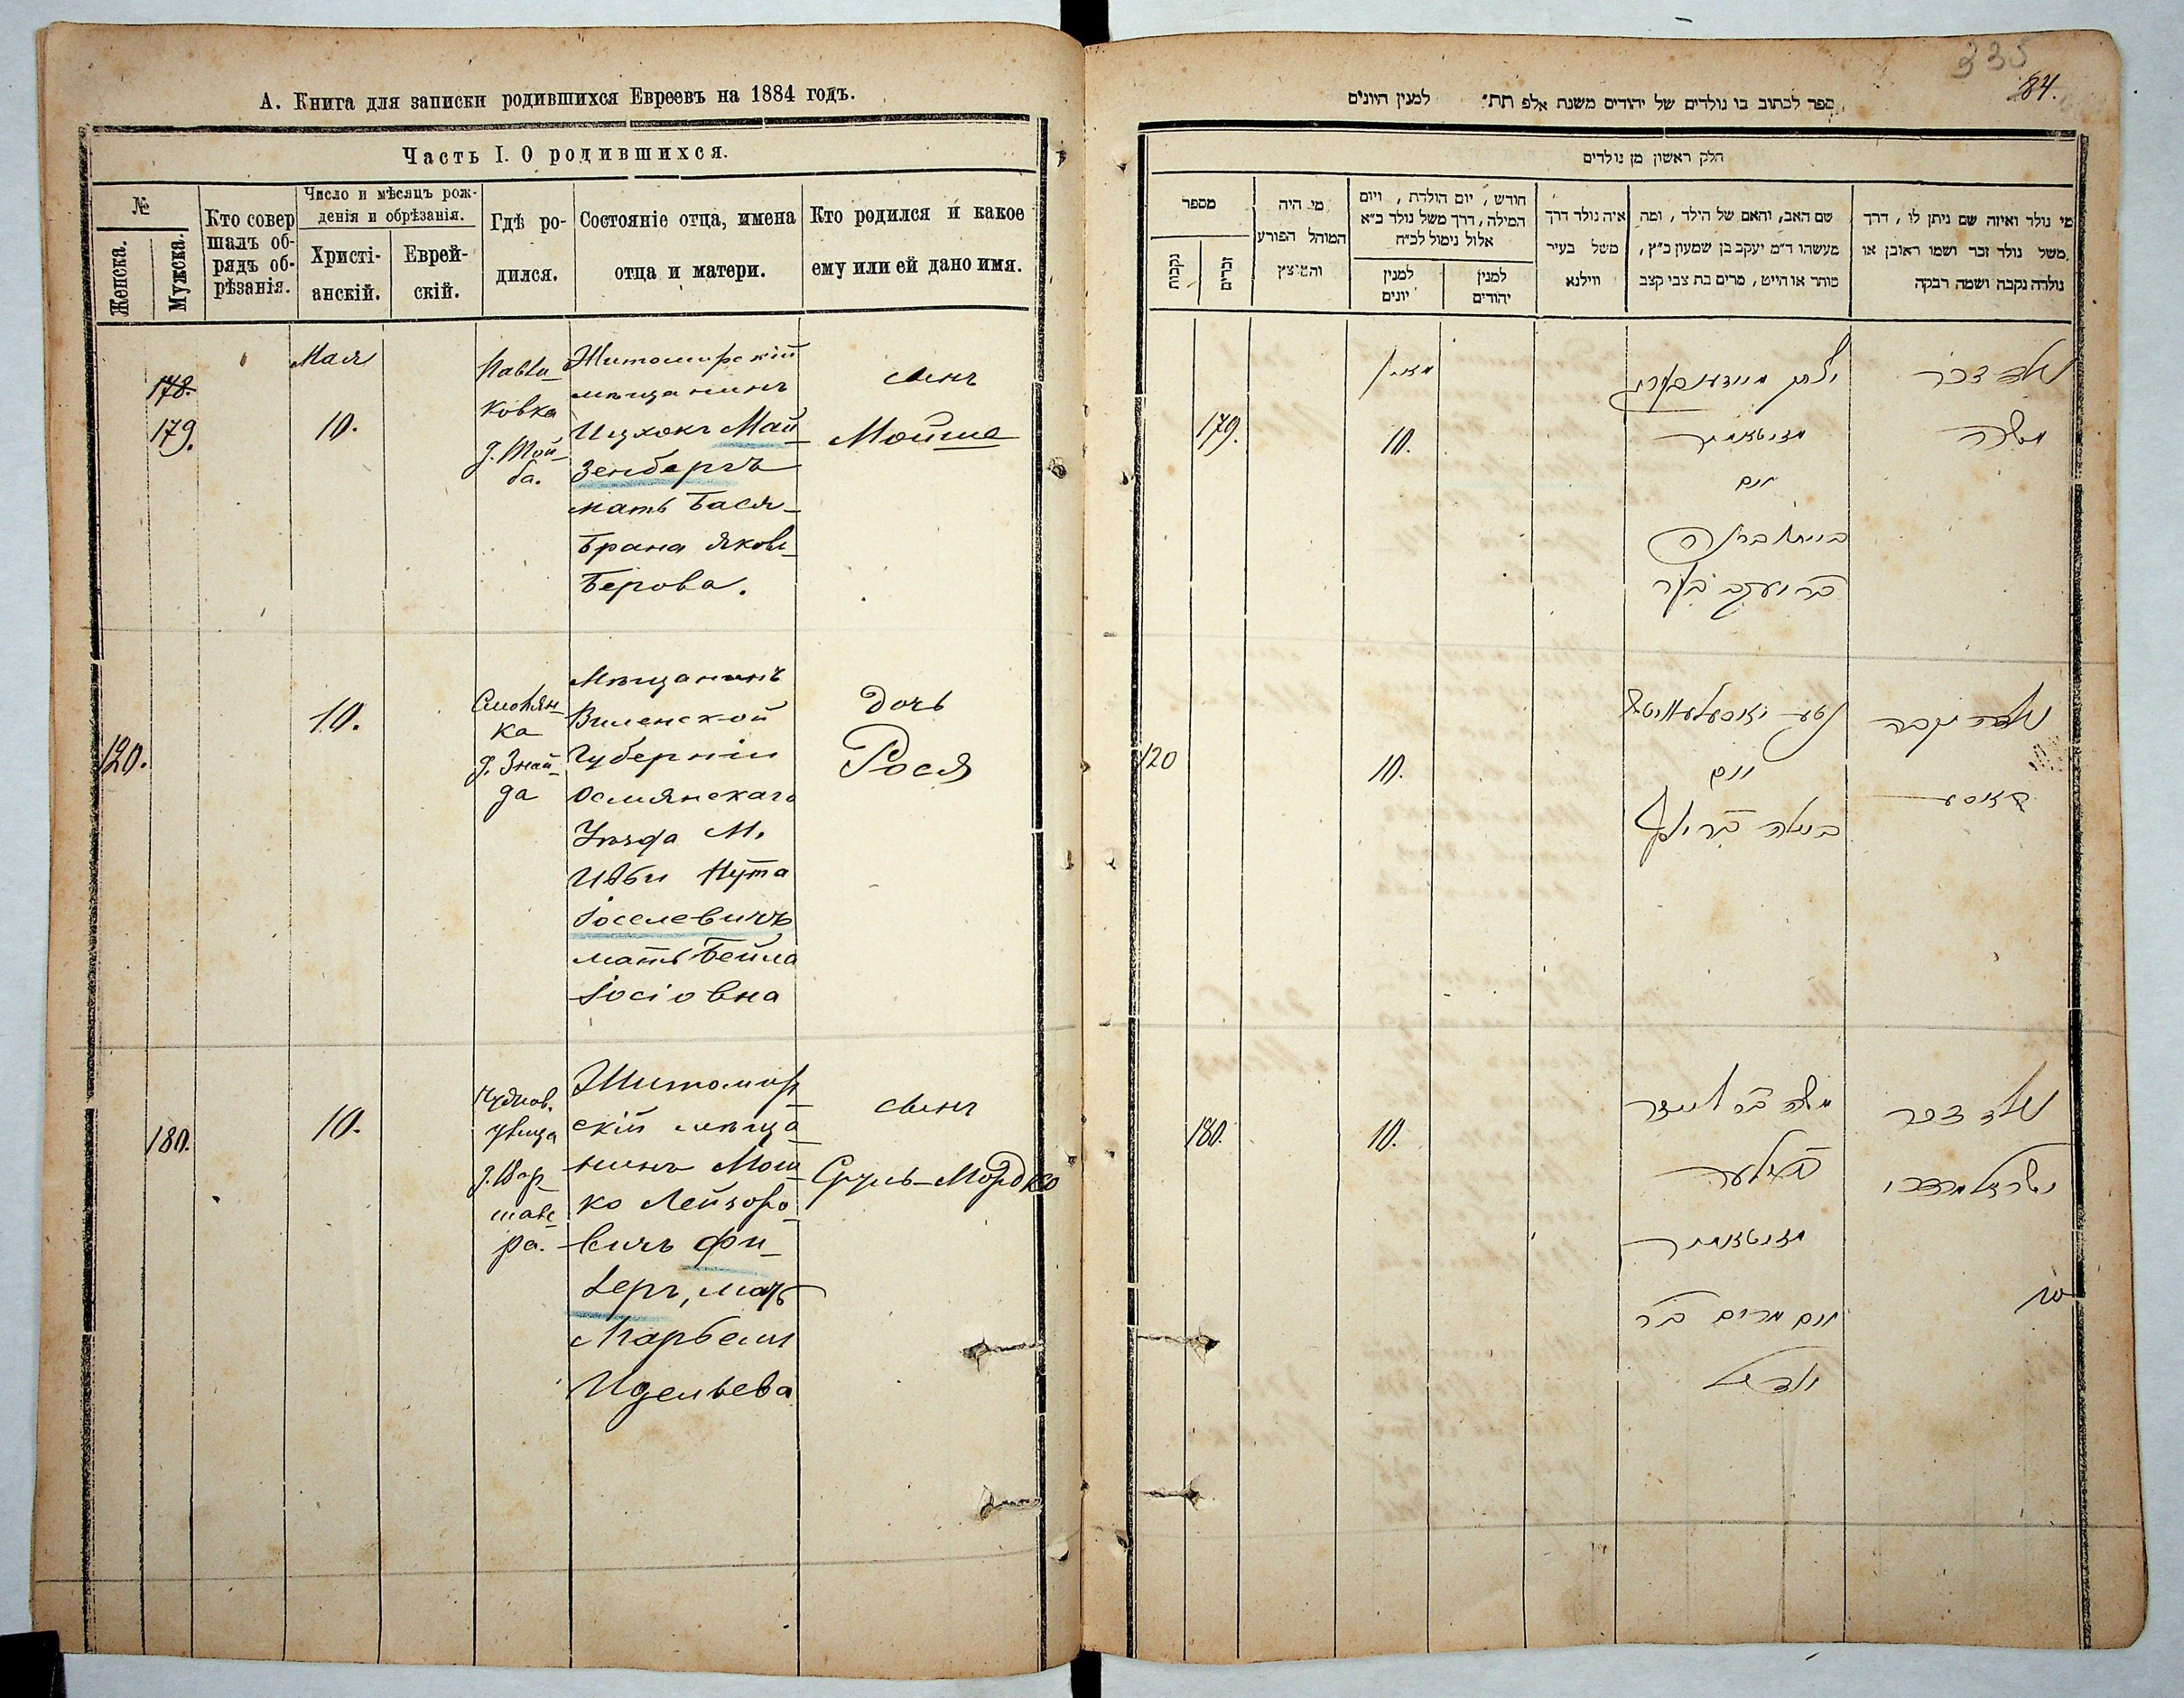 А. Книга для записки родившихся Евреевъ на 1884 годъ.
Часть I. О родившихся.
№
Женска.
Мужска.
Кто совер
шалъ об-
рядъ об-
рѣзанія.
Число и мѣсяцъ рож-
денія и обрѣзанія.
Христі-
анскій.
Еврей-
скій.
Гдѣ ро-
дился.
Состояніе отца, имена
отца и матери.
Кто родился и какое
ему или ей дано имя.
178.
179.
Мая
10.
Павли-
ковка
Житомирскій
мѣщанинъ
Ицхокъ Май-
зенбергъ
мать Бася-
Брана Яковъ-
Берова.
сынъ
Мойше
120.
10.
Смолян-
ка
д. Знай-
да
Мѣщанинъ
Виленской
Губерніи
Осмянскаго
Уѣзда М.
Ивьи Нута
Іоселевичъ
мать Бейла
Іосіовна
дочь
Рося
180.
10.
Чуднов.
улица
Житомир-
скій мѣща-
нинъ Мош-
ко Лейзоро-
вичъ Фи-
леръ, мать
Марьеми
Идельева
сынъ
Сруль-Мордко
335
84.
ספר לכתוב בו נולדים של יהודים משנת אלפ תת״ למנין היונים
חלק ראשון מן נולדים
מספר
נקבות
זכרים
מי היה
המוהל הפורע
והמוצץ
חודש, יום הולדת, ויום
המילה, דרך משל נולד כ״א
אלול נימול לכ״ח
למנין
יונים
למנין
יהודים
איה נולד דרך
משל בעיר
ווילנא
שם האב, והאם של הילד, ומה
מעשהו ד״מ יעקב בן שמעון כ״ץ,
סוחר או חייט, מרים בת צבי קצב
מי נולד ואיזה שם ניתן לו, דרך
משל נולד זכר ושמו ראובן או
נולדה נקבה ושמה רבקה
179.
10.
יצחק מייזענבערג
מזיטאמיר
ואם
בת יעקב בער
נולד זכר
משה
120
10.
נטע יאסעלעוויטש
ואם
ביילה בת יוסף
נולדה נקבה
ראסע
180.
10.
משה בר לייזר
פילער
מזיטאמיר
ואם מרים בת
יודל
נולד זכר
ישראל מרדכי